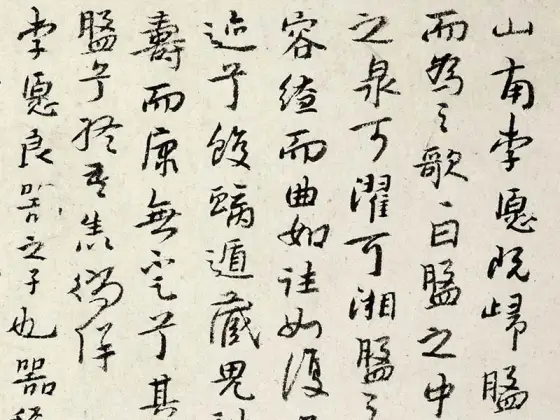 山南李愿既歸盤
而為之歌曰盤之中
之泉可濯可湘盤之
容繚而曲如往如復
迹兮蛟螭遁藏鬼
壽而康無不足兮其
盤兮終吾生以徜徉
李愿良器之子也器